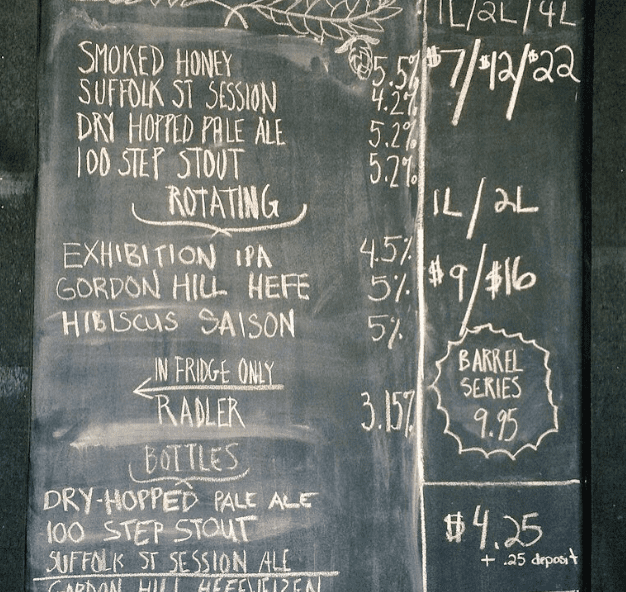 1L/2L/4L
SMOKED HONEY 5.5%
$7/$12/$22
SUFFOLK ST SESSION 4.2%
DRY HOPPED PALE ALE 5.2%
100 STEP STOUT 5.2%
ROTATING
1L/2L
EXHIBITION IPA 4.5%
GORDON HILL HEFE 5%
$9/$16
HIBISCUS SAISON 5%
BARREL
SERIES
9.95
IN FRIDGE ONLY
RADLER 3.15%
BOTTLES
DRY-HOPPED PALE ALE
100 STEP STOUT
$4.25
SUFFOLK ST SESSION ALE
+ .25 deposit
GORDON HILL HEFEWEIZEN